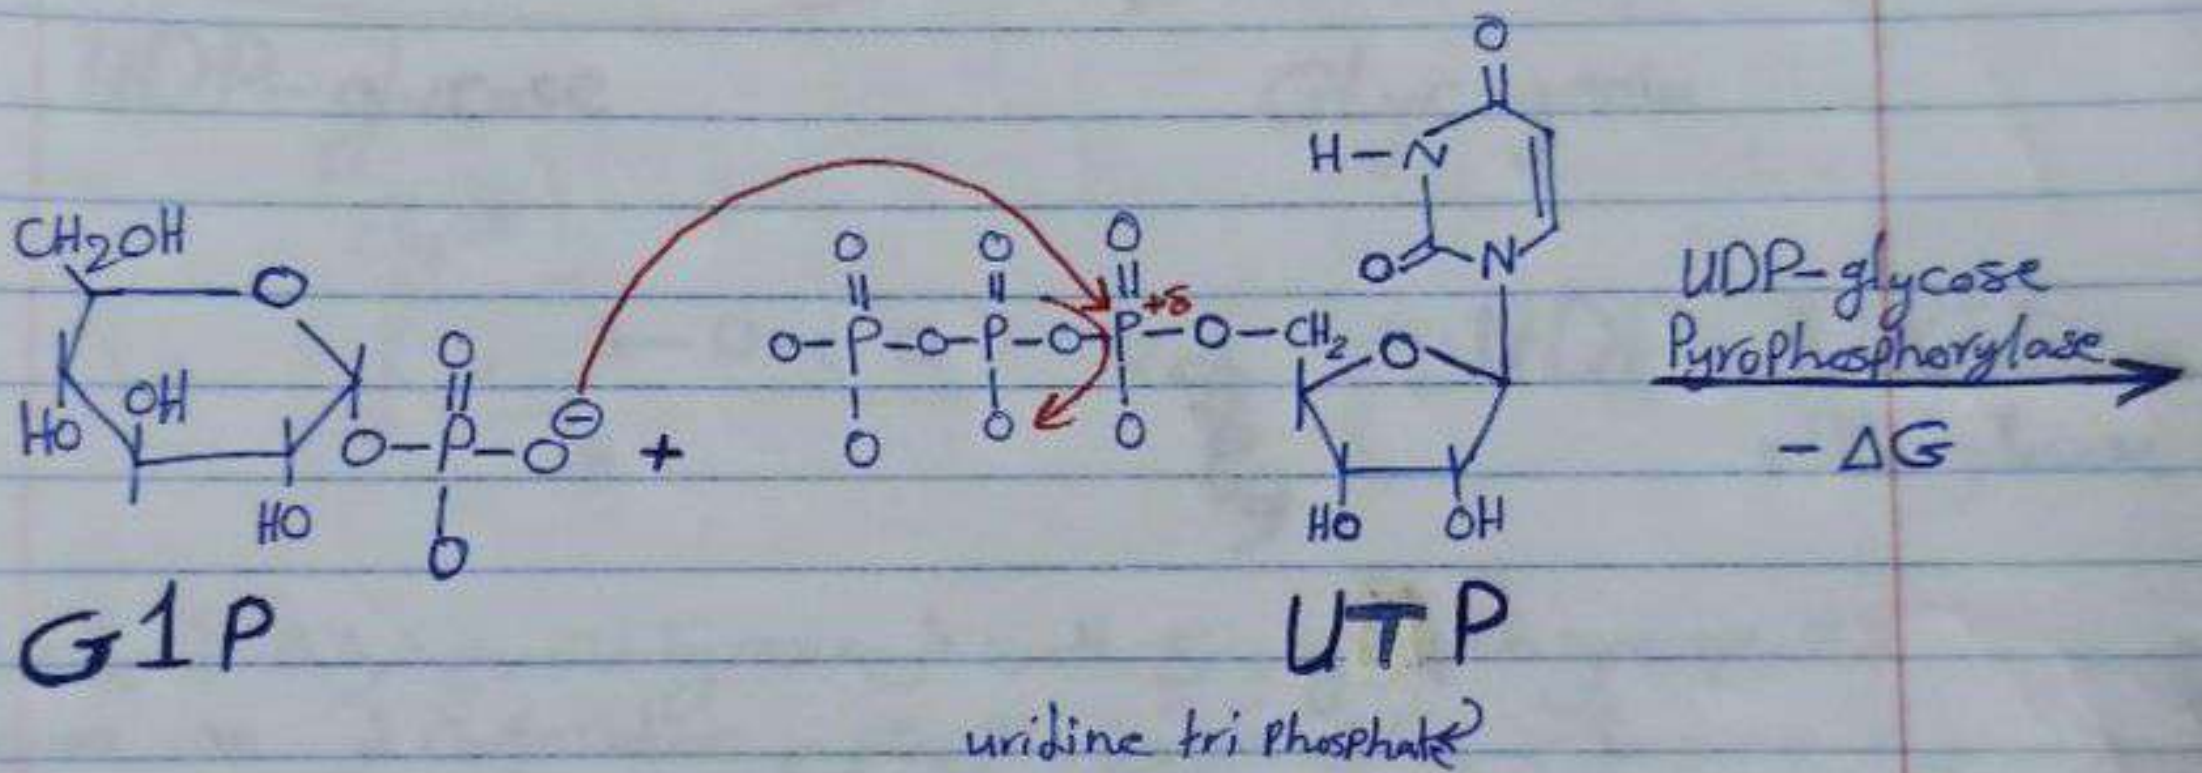 O
H-N
O N
CH2OH
O
OH
HO
HO
O
O-P-O⊖
O
+
O O O
O-P-O-P-O-P+δ-O-CH2 O
O O O
HO OH
UDP-glycose
Pyrophosphorylase
-ΔG
G1P
UTP
uridine tri phosphate